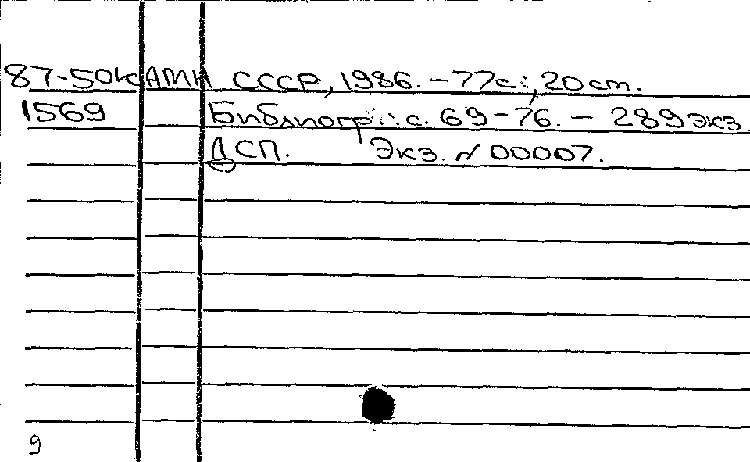 87-50к АМН СССР, 1986. – 77с.; 20 cm.
1569 Библиогр.: с. 69-76. – 289 экз
ДСП. Экз. N 00007.
9